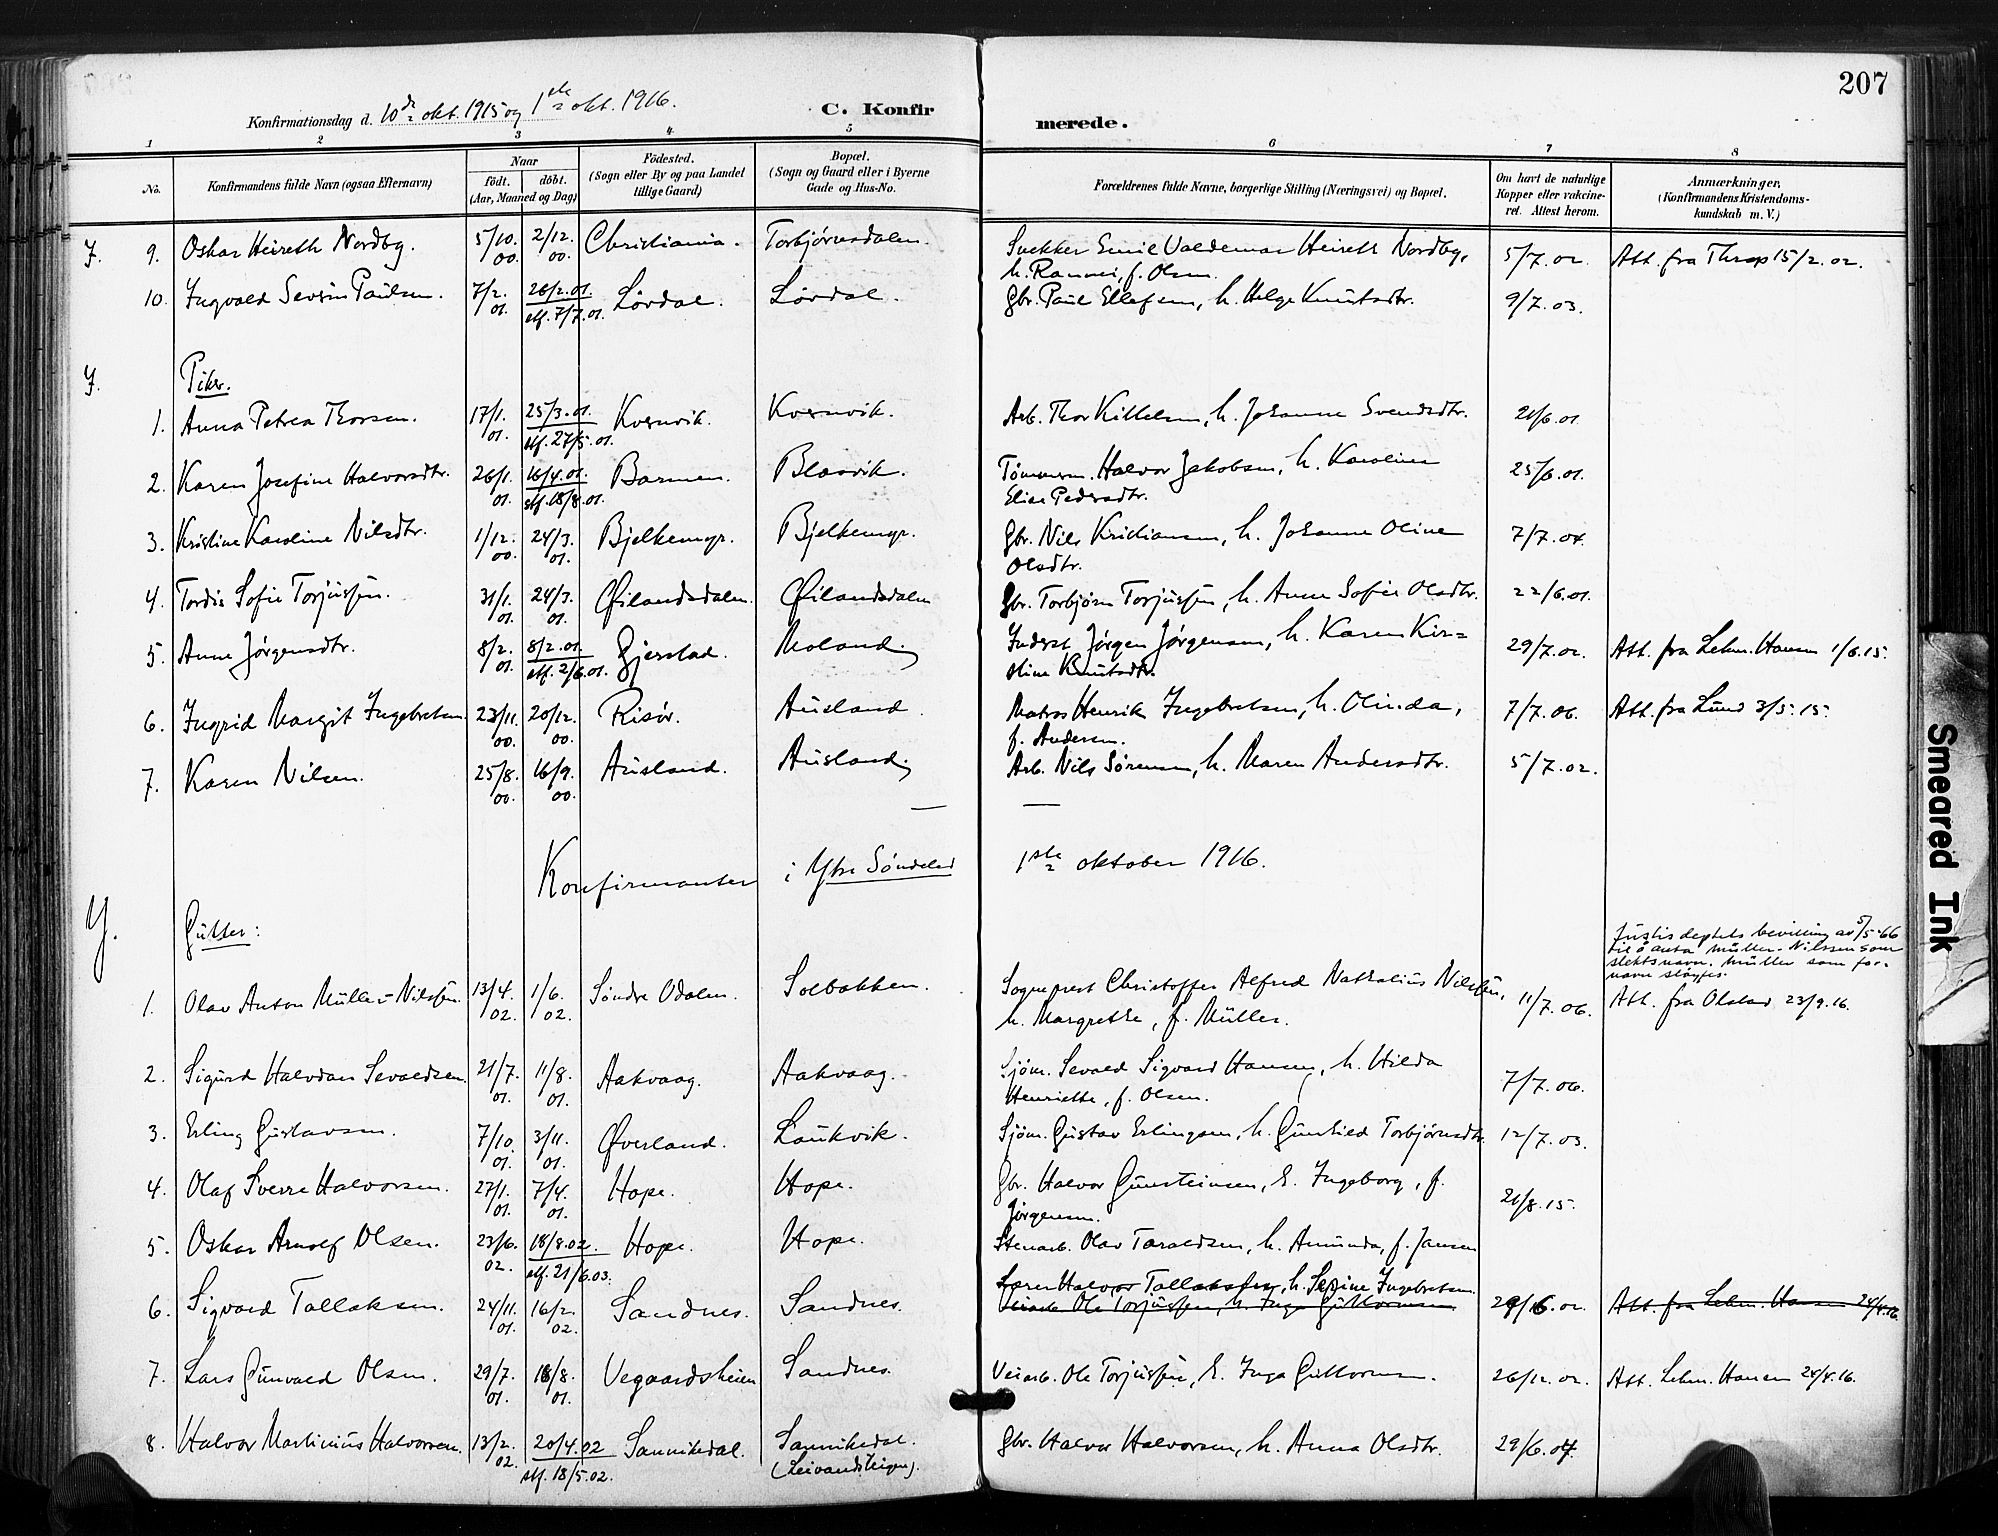 207
Konfirmationsdag d. 10de okt. 1915 og 1ste okt. 1916.
C. Konfirmerede.
1 2 3 4 5 6 7 8
No. Konfirmandens fulde Navn (ogsaa Efternavn) Naar födt. döbt. (Aar, Maaned og Dag) Födested. (Sogn eller By og paa Landet tillige Gaard) Bopæl. (Sogn og Gaard eller i Byerne Gade og Hus-No. Forældrenes fulde Navne, borgerlige Stilling (Næringsvei) og Bopæl. Om havt de naturlige Kopper eller vakcineret. Attest herom. Anmærkninger. (Konfirmandens Kristendomskundskab m. V.)
9. Oskar Heireth Nordby. 5/10. 00. 2/12. 00. Christiania. Torbjörnsdalen. Emil Valdemar Heireth Nordby, 5/7.02. Att. fra 15/2.02.
h. Rannei, f. Olsen.
10. Ingvald Severin Paulsen. 7/2. 01. 26/2.01. stf. 7/7.01. Lövdal. Lövdal. Gbr. Paul Ellefsen, h. Helge Knutsdtr. 9/7.03.
Y. Piker.
1. Anna Petrea Thorsen. 17/1. 01. 25/3.01. stf. 27/5.01. Kvernvik. Kvernvik. Arb. Thor Kittelsen, h. Johanne Svendsdtr. 21/6.01.
2. Karen Josefine Halvorsdtr. 26/1. 01. 16/4.01. stf. 18/8.01. Barmen. Blaavik. Tömmerm. Halvor Jakobsen, h. Karoline 25/6.01.
Elise Pedersdtr.
3. Kristine Karoline Nilsdtr. 1/12. 00. 24/3. 01. Bjelkemyr. Bjelkemyr. Gbr. Nils Kristiansen, h. Johanne Oline 7/7.04.
Olsdtr.
4. Tordis Sofie Torjussen. 31/1. 01. 24/3. 01. Øilandsdalen. Øilandsdalen Gbr. Torbjörn Torjussen, h. Anne Sofie Olsdtr. 22/6.01.
5. Anne Jørgensdtr. 8/2. 01. 8/2.01. stf. 2/6.01. Gjerstad. Moland. Inderst Jørgen Jørgensen, h. Karen Kir=
stine Knutsdtr. 29/7.02. Att. fra Lehm. Hansen 1/6.15.
6. Ingrid Margit Ingebretsen 23/11. 00. 20/12. 00. Risör. Ausland. Matros Henrik Ingebretsen, h. Olinda, 7/7.06. Att. fra Lund 3/5.15.
f. Andersen.
7. Karen Nilsen. 25/8. 00. 16/9. 00. Ausland. Ausland. Arb. Nils Sörensen, h. Maren Andersdtr. 5/7.02.
Konfirmanter i Ytre Söndeled 1ste oktober 1916.
Y. Gutter:
Justisdeptets bevilling av 5/5-66
til å anta Müller-Nilssen som
slektsnavn. Müller som for-
navn sløyfes.
1. Olav Anton Müller=Nilssen. 13/4. 02. 1/6. 02. Söndre Odalen. Solbakken. Sogneprest Christoffer Alfred Nathalius Nilssen, 11/7.06. Att. fra Olstad 23/9.16.
h. Margrethe, f. Müller.
2. Sigurd Halvdan Sevaldsen. 21/7. 01. 11/8. 01. Aakvaag. Aakvaag. Sjöm. Sevald Sigvard Hansen, h. Hilda 7/7.06.
Henriette, f. Olsen.
3. Erling Gustavsen. 7/10. 01. 3/11. 01. Øverland. Laukvik. Sjöm. Gustav Erlingsen, h. Gunhild Torbjörnsdtr. 12/7.03.
4. Olaf Sverre Halvorsen. 27/1. 01. 7/4. 01. Hope. Hope. Gbr. Halvor Gunsteinsen, h. Ingeborg, f. 21/8.15.
Jørgensen.
5. Oskar Arnolf Olsen. 23/6. 02. 18/8.02. stf. 21/6.03. Hope. Hope. Stenarb. Olav Taraldsen, h. Amunda, f. Jansen
6. Sigvard Tallaksen. 24/11. 01. 16/2. 02. Sandnes. Sandnes. Halvor Tallaksen, h. Serine Ingebretsen
Veiarb. Ole Torjussen, h. Inga Guttormsen 29/6.02. Att. fra Lehm. Hansen 24/4.16.
7. Lars Gunvald Olsen. 29/7. 01. 18/8. 01. Vegaardsheien Sandnes. Veiarb. Ole Torjussen, h. Inga Guttormsen. 26/12.02. Att. Lehm. Hansen 24/4.16.
8. Halvor Martinius Halvorsen. 13/2. 02. 20/4.02 stf. 18/5.02. Sannikedal. Sannikedal. Gbr. Halvor Halvorsen, h. Anna Olsdtr. 29/6.04.
Smeared Ink